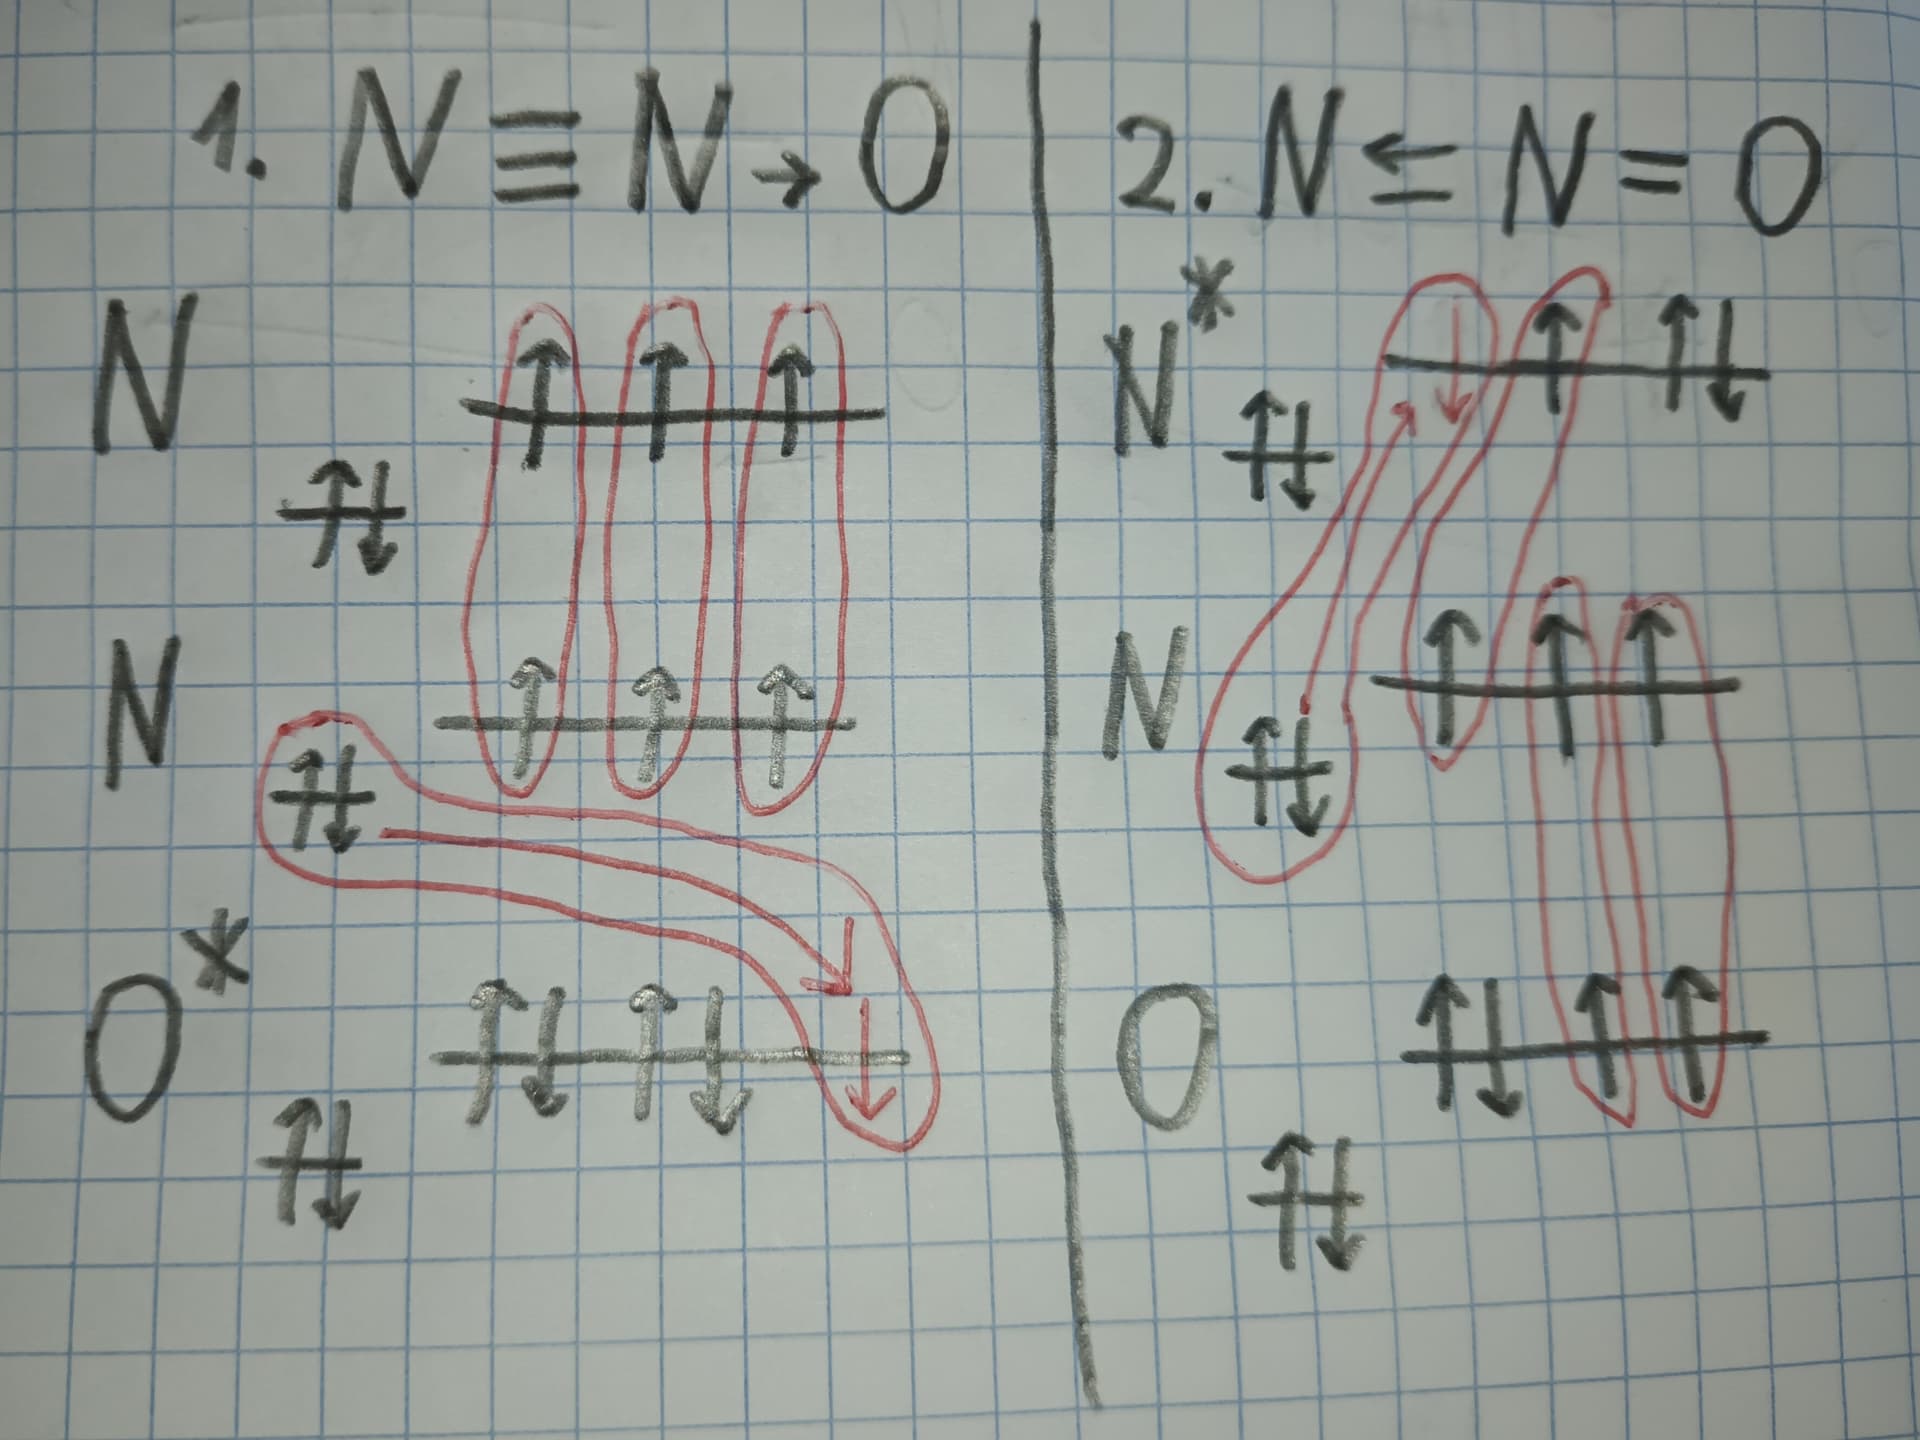 1. N ≡ N → O
N
N
O*
2. N ⇐ N = O
N*
N
O